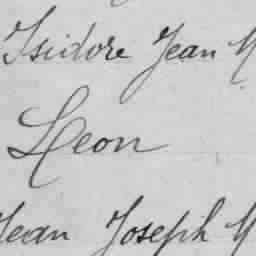 Isidore Jean M
Léon
Jean Joseph M